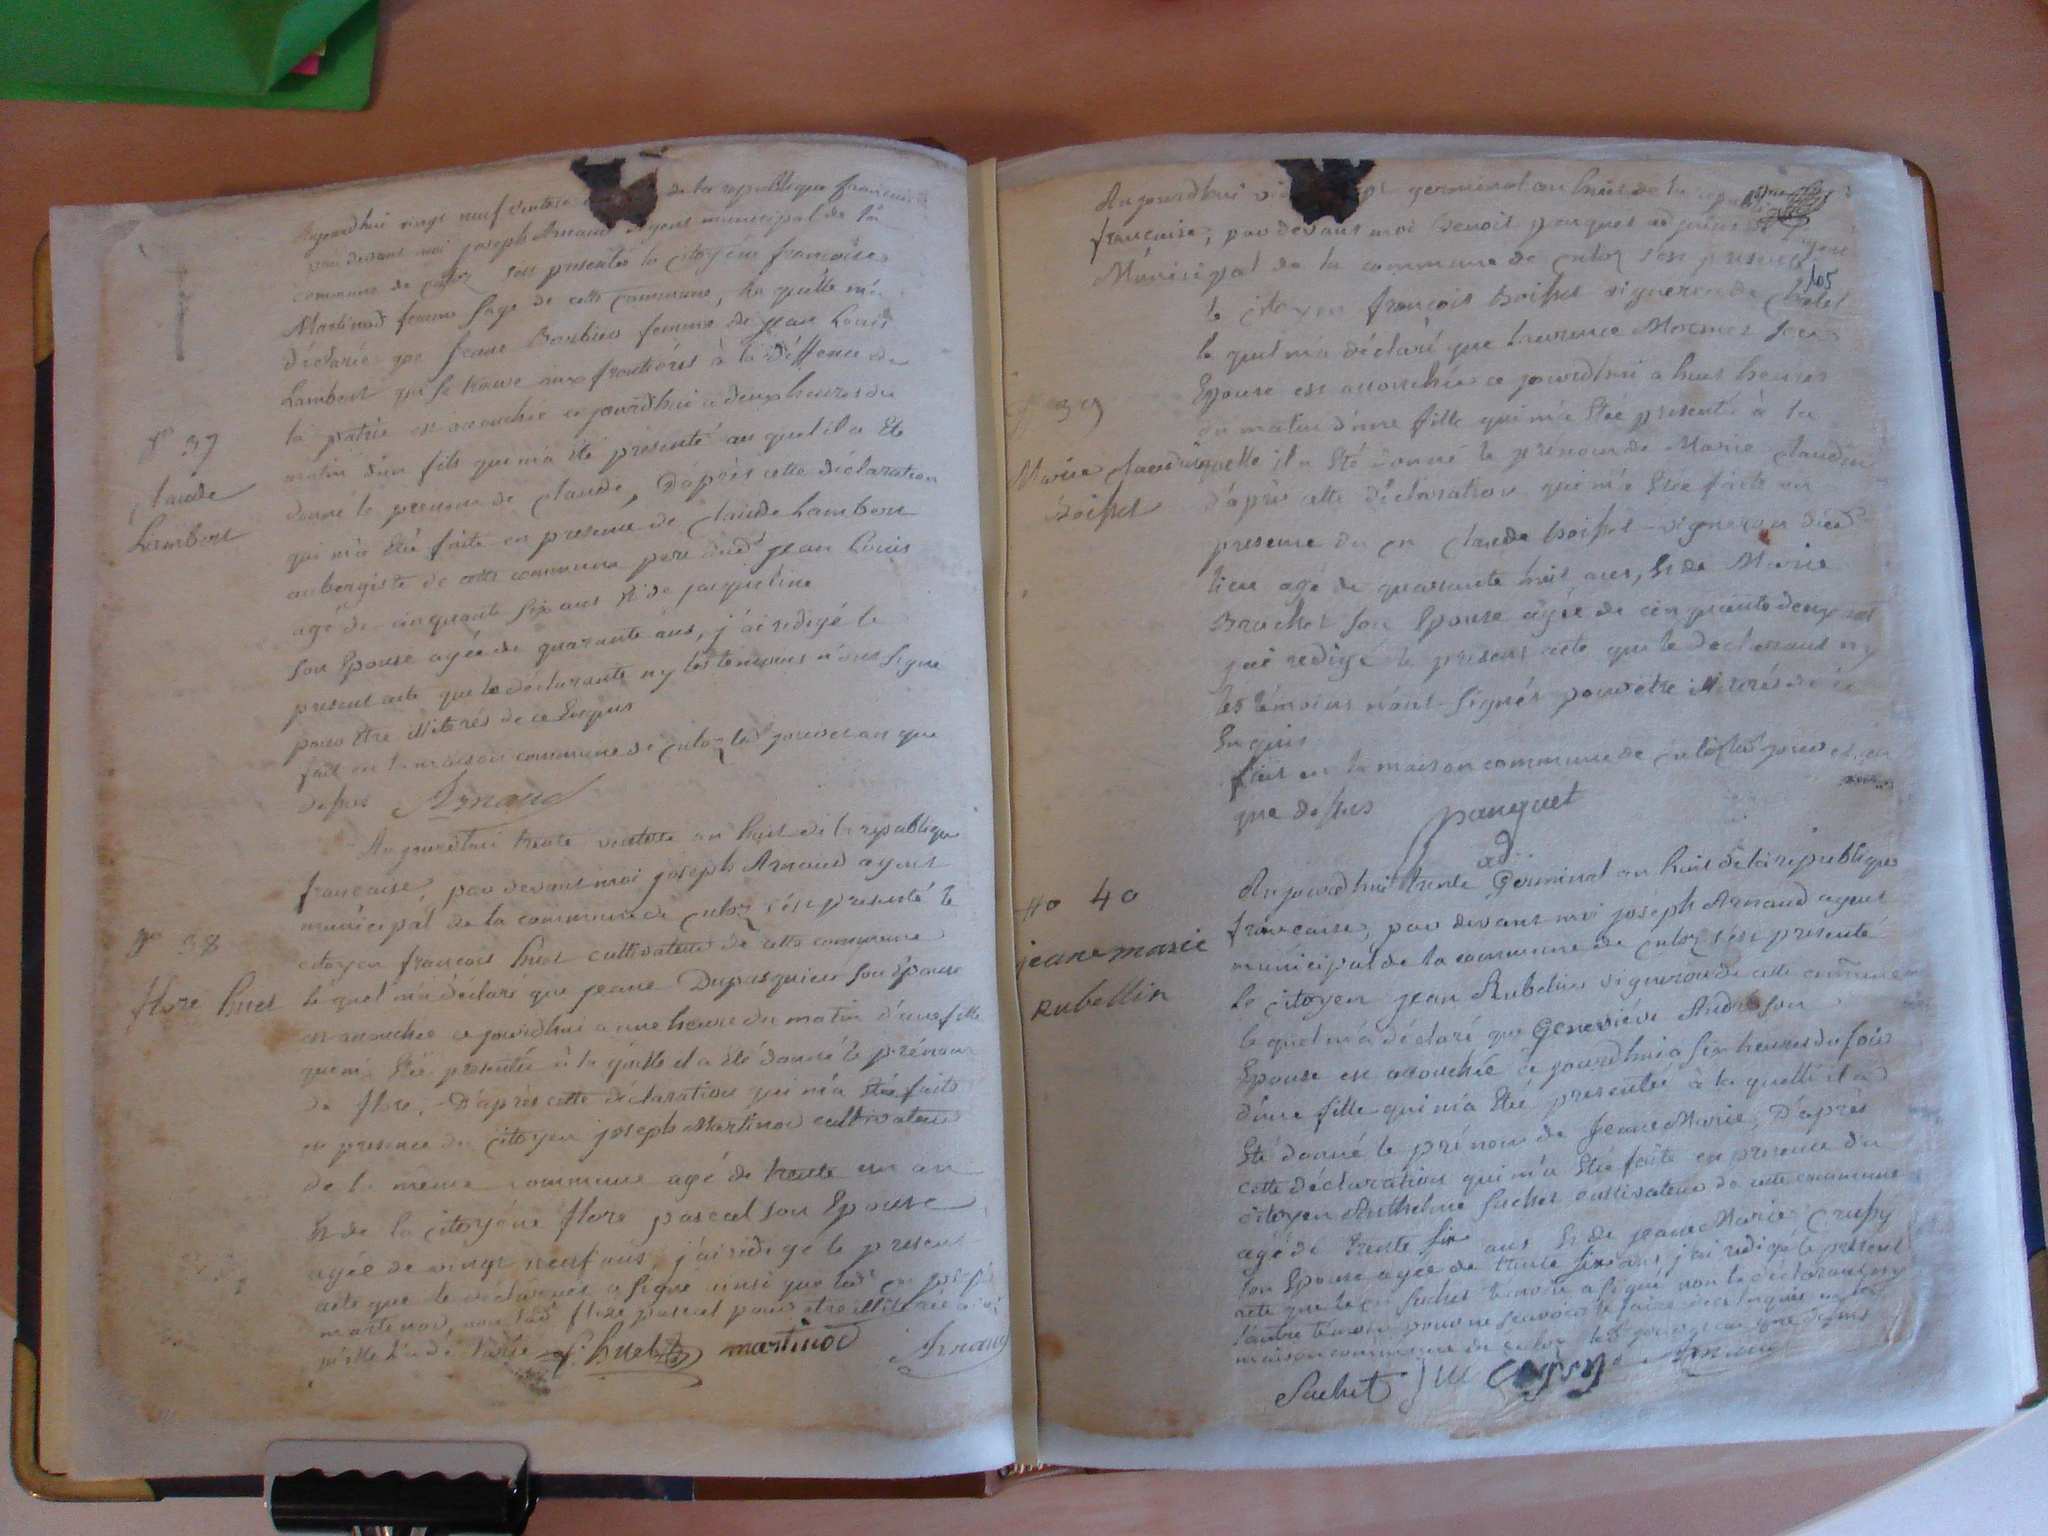 Aujourdhui vingt neuf ventose de la republique francaise
par devant moi joseph Arnaud agent municipal de la
commune de culoz s'est presentée la citoyene francoise
Martinod femme sage de cette commune, la quelle m'a
déclaré que jeane Barbier femme de jean Louis
Lambert qui se trouve aux frontières à la déffence de
la patrie est accouchée ce jourdhui a deux heures du
matin d'un fils qui m'a été presenté au quel il a été
N° 37
Claude
Lambert
donné le prenom de Claude, D'après cette déclaration
qui m'a été faite en presence de Claude Lambert
aubergiste de cette commune pere dudt jean Louis
agé de cinquante six ans et de jacqueline
son Epouse agée de quarante ans, j'ai redigé le
present acte que la déclarante ny les temoins n'ont signé
pour être illiterés de ce Enquis
fait en la maison commune de culoz led jour et an que
dessus Arnaud
Aujourdhui trente ventose an huit de la republique
francaise, par devant moi joseph Arnaud agent
municipal de la commune de culoz s'est presenté le
citoyen francois huet cultivateur de cette commune
N° 38
flore huet
le quel m'a déclaré que jeane Dupasquier son Epouse
est accouchée ce jourdhui a une heure du matin d'une fille
qui m'a été presentée à la quelle il a été donné le prénom
de flore, D'après cette déclaration qui m'a été faite
en presence du citoyen joseph Martinod cultivateur
de la même commune agé de trente un an
et de la citoyéne flore pascal son Epouse
agée de vingt neuf ans, j'ai redigé le present
acte que le déclarant a signé ainsi que led cn joseph
martinod, non lad flore pascal pour être illiterée ainsi
qu'elle l'a déclaré f. huet martinod Arnaud
Aujourdhui germinal an huit de la
francaise, par devant moi benoit panquet adjoint
Municipal de la commune de culoz s'est presenté
105
le citoyen françois boisset vigneron de
le quel m'a déclaré que Laurence Mermet son
Epouse est accouchée ce jourdhui a huit heures
du matin d'une fille qui m'a été presentée à la
N° 39
Marie claudine
boisset
quelle il a été donné le prénom de Marie claudine
d'après cette déclaration qui m'a été faite en
presence du cn claude boisset vigneron dud
lieu agé de quarante huit ans, et de Marie
Brochet son Epouse agée de cinquante deux ans
jai redigé le present acte que le declarant ny
les témoins n'ont signés pour être illiterés de ce
Enquis
fait en la maison commune de culoz led jour et an
que dessus panquet
ad.
Aujourdhui trente Germinal an huit de la republique
francaise, par devant moi joseph Arnaud agent
municipal de la commune de culoz s'est presenté
N° 40
jeane marie
Rubellin
le citoyen jean Rubelin vigneron de cette commune
le quel m'a déclaré que Geneviéve André son
Epouse est accouchée ce jourdhui a six heures du soir
d'une fille qui m'a été presentée à la quelle il a
été donné le prénom de Jeane Marie, D'après
cette déclaration qui m'a été faite en presence du
citoyen Anthelme Suchet cultivateur de cette commune
agé de trente six ans et de jeane Marie Crussy
son Epouse agée de trente six ans j'ai redigé le present
acte que le cn Suchet témoin a signé non le déclarant ny
l'autre témoin pour ne sçavoir le faire de ce Enquis en la
maison commune de culoz led jour et an que dessus
Suchet Arnaud